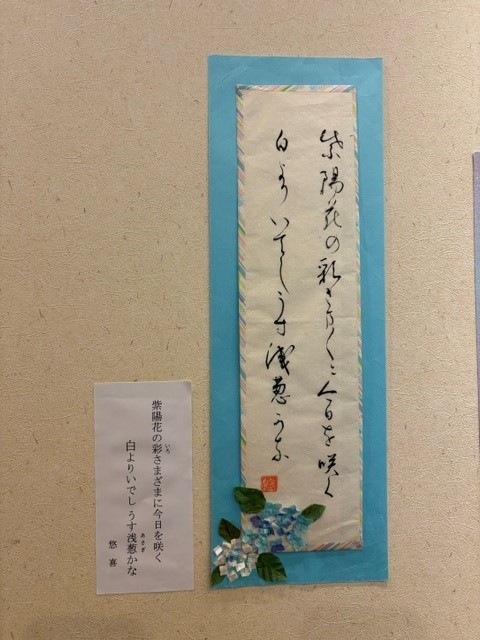 紫陽花の彩さまざまに今日を咲く
白よりいでしうす浅葱かな
紫陽花の彩さまざまに今日を咲く
いろ
白よりいでし うす浅葱かな
あさぎ
悠喜